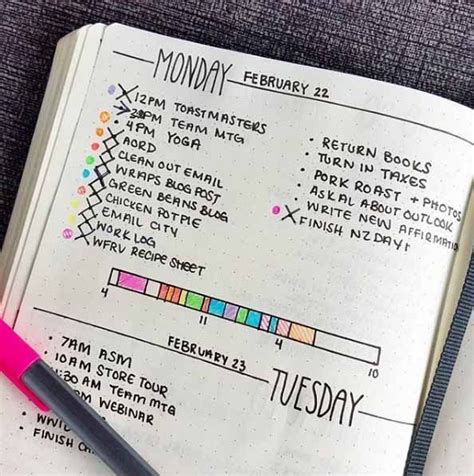 MONDAY FEBRUARY 22
12PM TOASTMASTERS
3PM TEAM MTG
4PM YOGA
AORD
CLEAN OUT EMAIL
WRAPS BLOG POST
GREEN BEANS BLOG
CHICKEN POTPIE
EMAIL CITY
WORK LOG
WFRV RECIPE SHEET
• RETURN BOOKS
• TURN IN TAXES
• PORK ROAST + PHOTOS
• ASK AL ABOUT OUTLOOK
• WRITE NEW AFFIRMATION
FINISH NZ DAY 1
4 11 4 10
FEBRUARY 23 TUESDAY
• 7AM ASM
• 10AM STORE TOUR
:30 AM TEAM MTG
PM WEBINAR
• FINISH